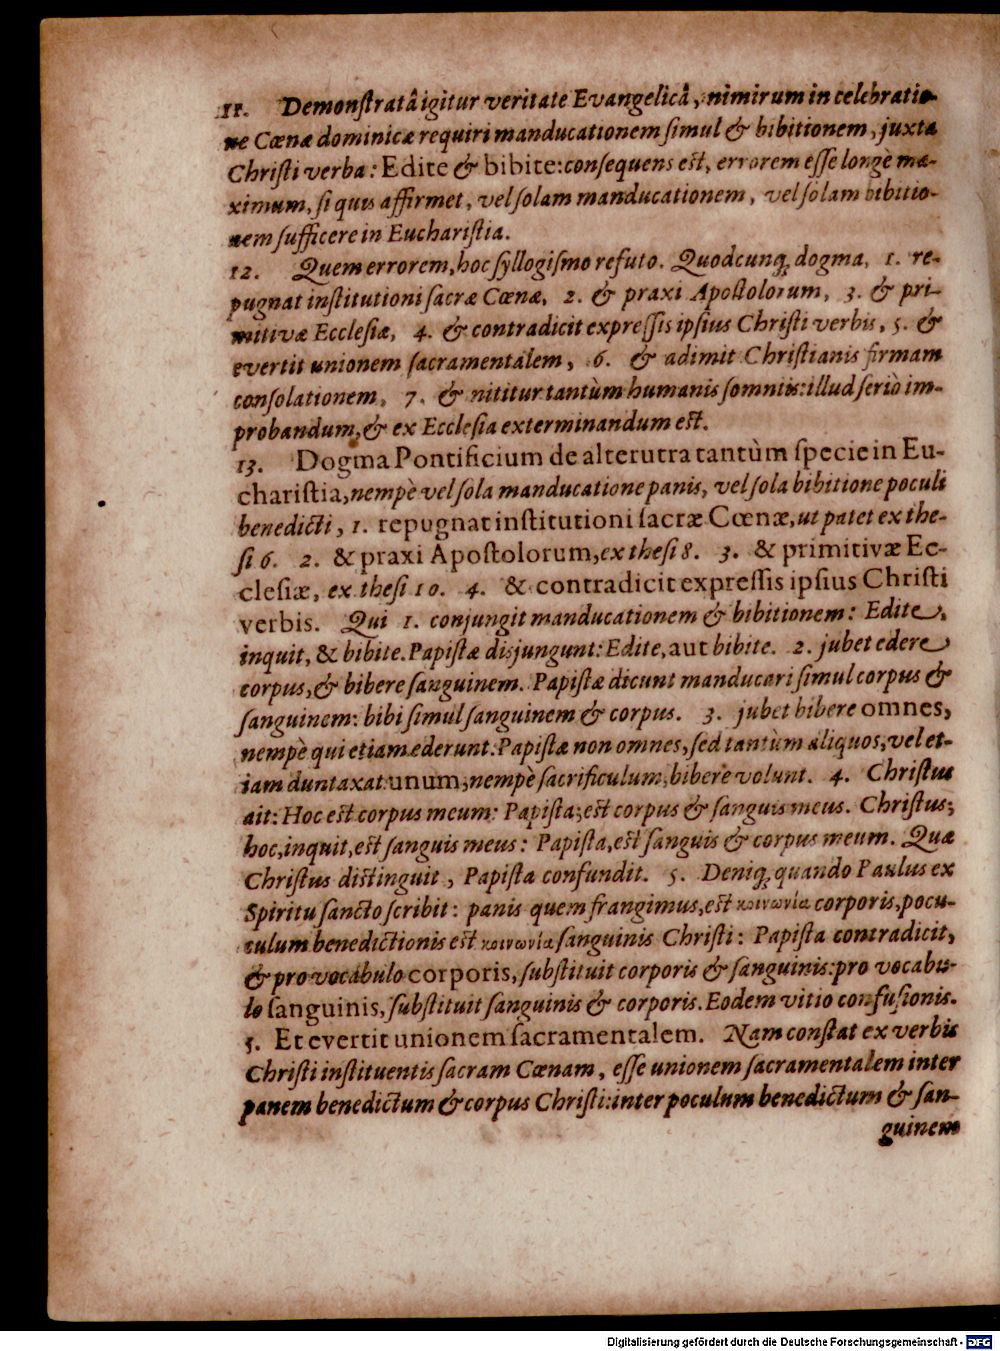 11. Demonstratâ igitur veritate Evangelicâ, nimirum in celebratio-
ne Cœnæ dominicæ requiri manducationem simul & bibitionem, juxta
Christi verba: Edite & bibite: consequens est, errorem esse longè ma-
ximum, si quis affirmet, vel solam manducationem, vel solam bibitio-
nem sufficere in Eucharistia.
12. Quem errorem, hoc syllogismo refuto. Quodcunq; dogma, 1. re-
pugnat institutioni sacræ Cœnæ, 2. & praxi Apostolorum, 3. & pri-
mitivæ Ecclesiæ, 4. & contradicit expressis ipsius Christi verbis, 5. &
evertit unionem sacramentalem, 6. & adimit Christianis firmam
consolationem, 7. & nititur tantùm humanis somniis: illud seriò im-
probandum, & ex Ecclesia exterminandum est.
13. Dogma Pontificium de alterutra tantùm specie in Eu-
charistia, nempè vel sola manducatione panis, vel sola bibitione poculi
benedicti, 1. repugnat institutioni sacræ Cœnæ, ut patet ex the-
si 6. 2. & praxi Apostolorum, ex thesi 8. 3. & primitivæ Ec-
clesiæ, ex thesi 10. 4. & contradicit expressis ipsius Christi
verbis. Qui 1. conjungit manducationem & bibitionem: Edite,
inquit, & bibite. Papistæ disjungunt: Edite, aut bibite. 2. jubet edere
corpus, & bibere sanguinem. Papistæ dicunt manducari simul corpus &
sanguinem: bibi simul sanguinem & corpus. 3. jubet bibere omnes,
nempè qui etiam ederunt: Papistæ non omnes, sed tantùm aliquos, vel et-
iam duntaxat unum, nempè sacrificulum, bibere volunt. 4. Christus
ait: Hoc est corpus meum: Papista; est corpus & sanguis meus. Christus;
hoc, inquit, est sanguis meus: Papista, est sanguis & corpus meum. Quæ
Christus distinguit, Papista confundit. 5. Deniq; quando Paulus ex
Spiritu sancto scribit: panis quem frangimus, est κοινωνία corporis, pocu-
culum benedictionis est κοινωνία sanguinis Christi: Papista contradicit,
& pro vocabulo corporis, substituit corporis & sanguinis: pro vocabu-
lo sanguinis, substituit sanguinis & corporis. Eodem vitio confusionis.
5. Et evertit unionem sacramentalem. Nam constat ex verbis
Christi instituentis sacram Cœnam, esse unionem sacramentalem inter
panem benedictum & corpus Christi: inter poculum benedictum & san-
guinem
Digitalisierung gefördert durch die Deutsche Forschungsgemeinschaft - DFG